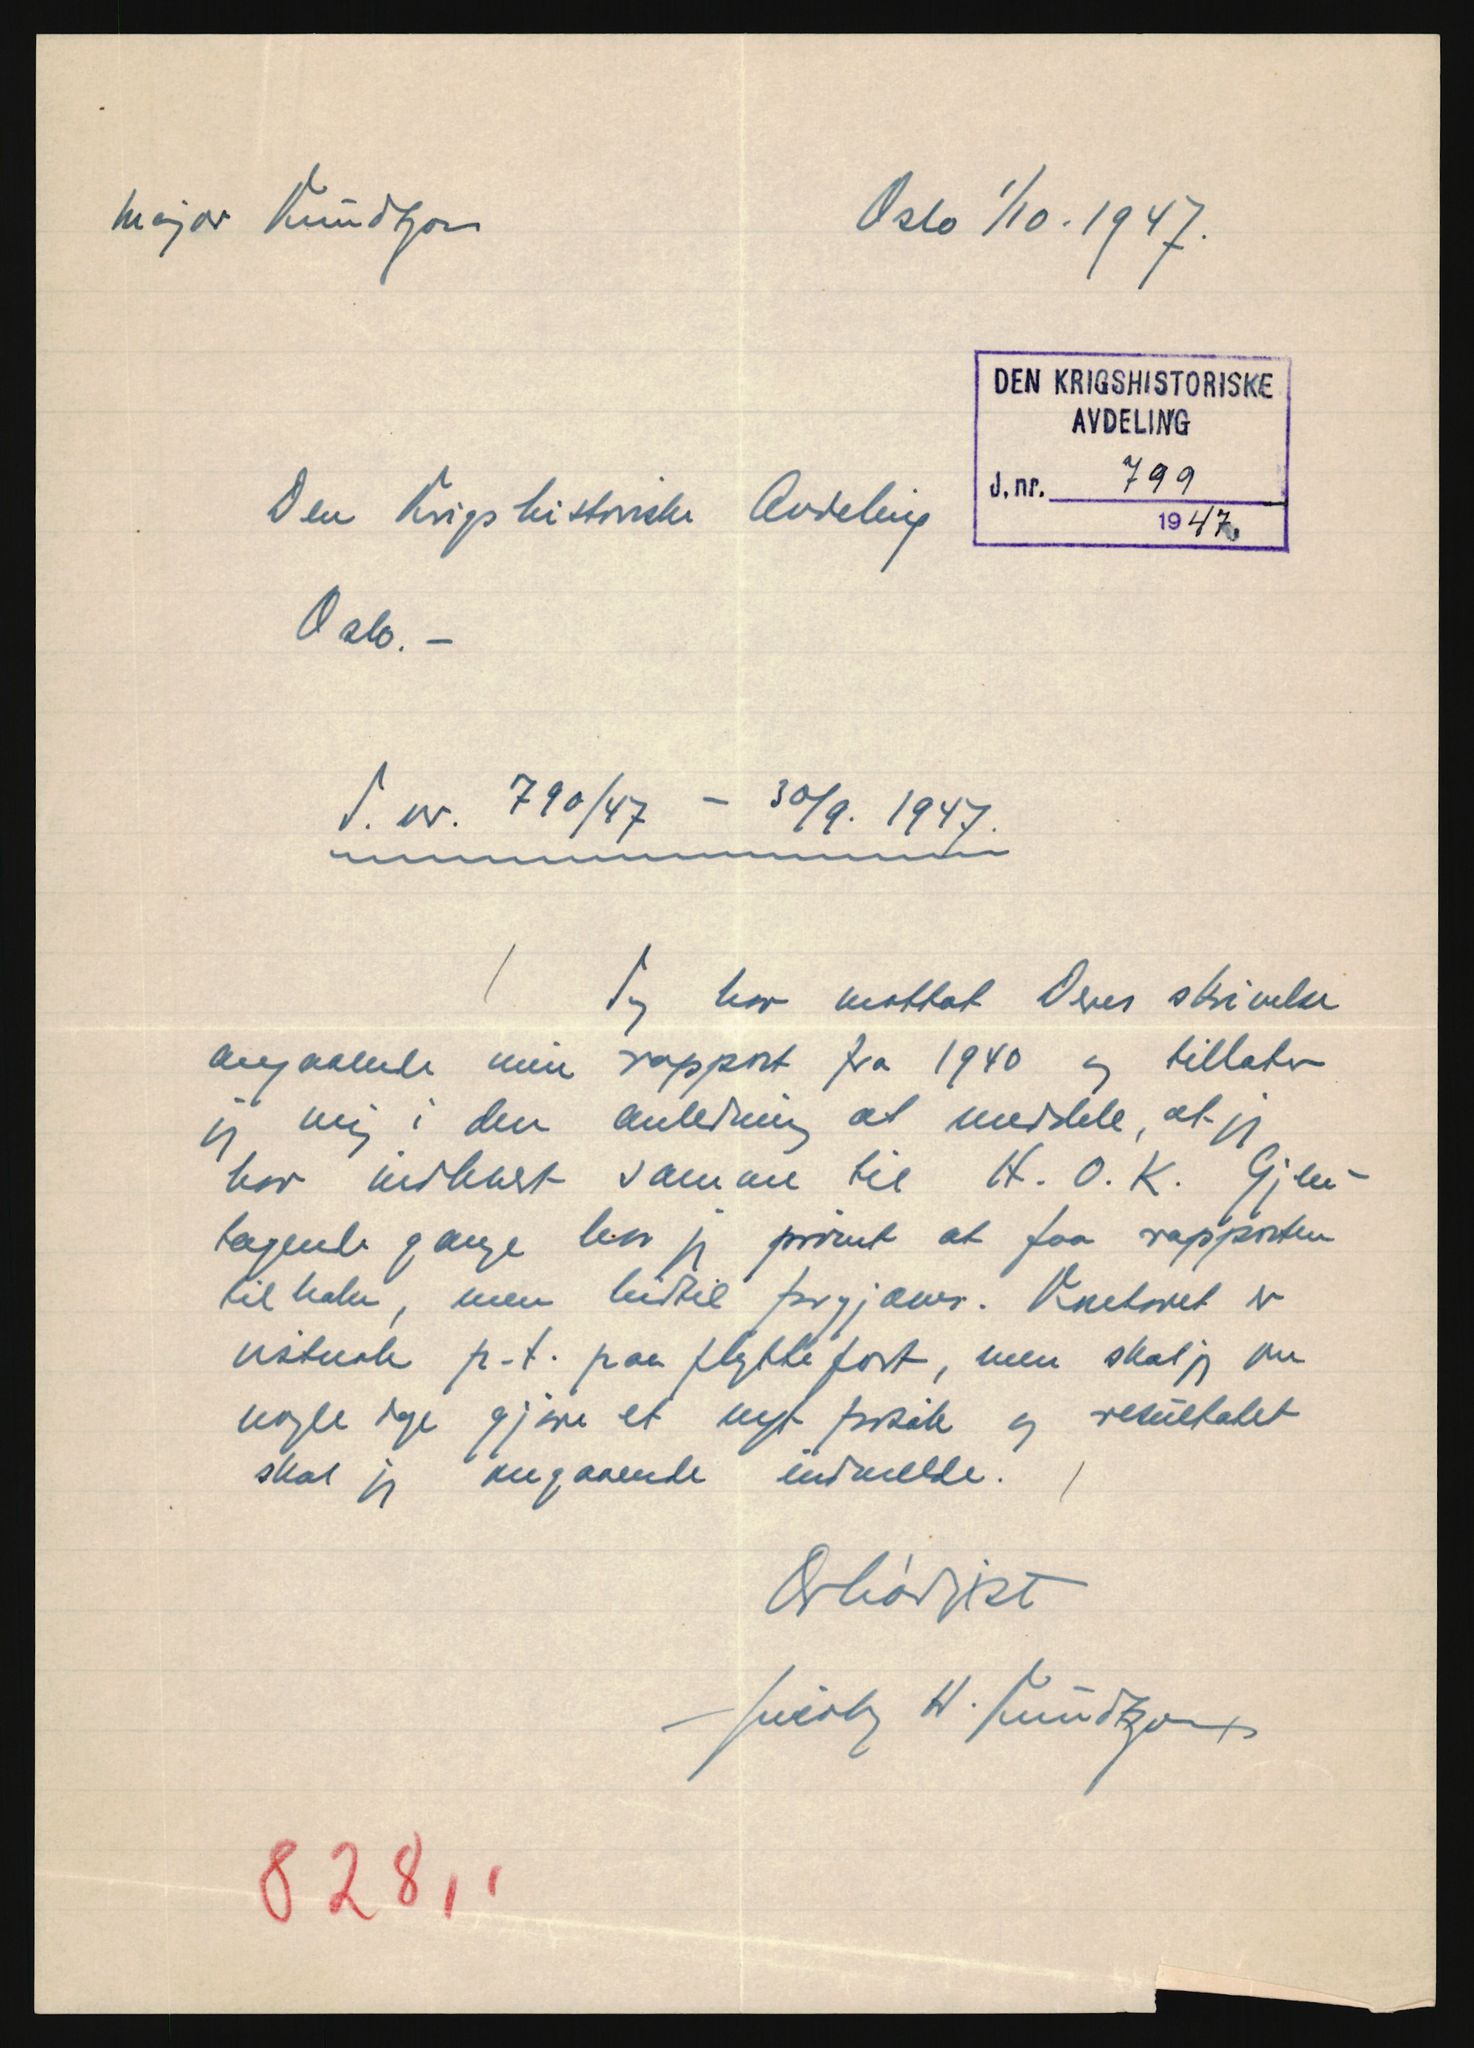 Major Kundtzon
Oslo 1/10. 1947.
DEN KRIGSHISTORISKE
AVDELING
J. nr. 799
1947.
Den Krigshistoriske Avdeling
Oslo. –
J. nr. 790/47 – 30/9. 1947.
Jeg har mottat Deres skrivelse
angaaende min rapport fra 1940 og tillater
jeg mig i den anledning at meddele, at jeg
har indlevert samme til H. O. K. Gjen-
tagende gange har jeg prövet at faa rapporten
tilbake, men hidtil forgjæves. Kontoret er
vistnok p.t. paa flyttefot, men skal jeg om
nogle dage gjöre et nyt forsök og resultatet
skal jeg omgaaende indmelde.
Ærbödigst
H. Kundtzon
828,,